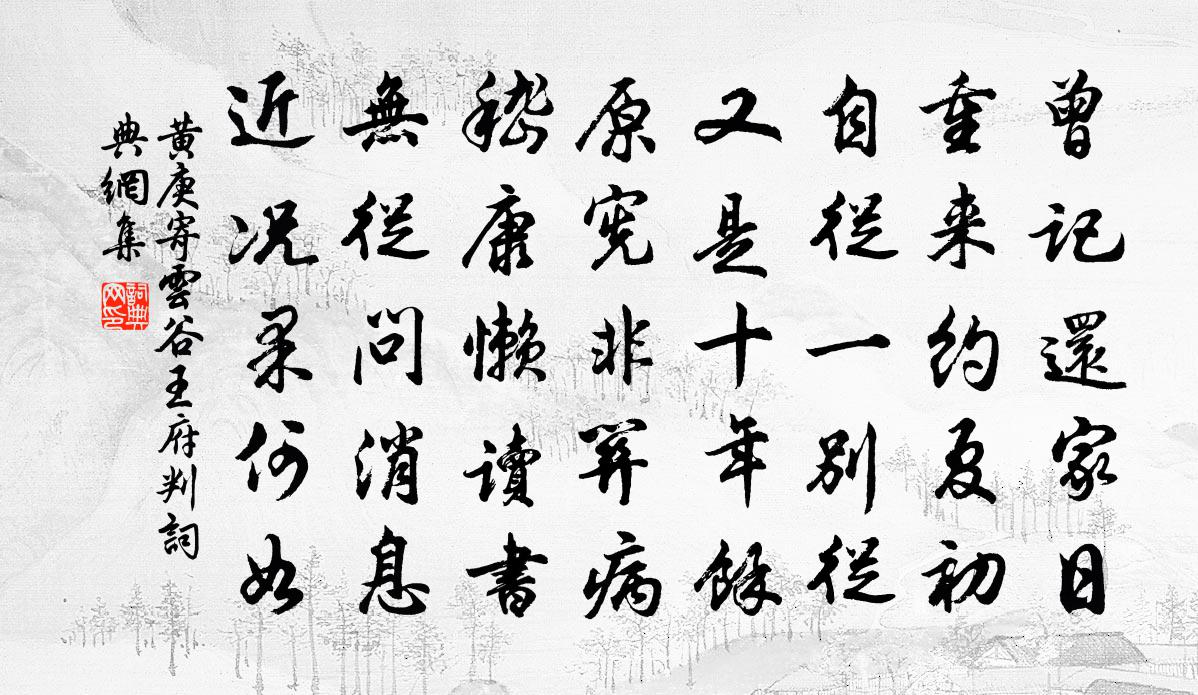 曾記還家日
重来約夏初
自從一別從
又是十年餘
原宪非關病
嵇康懶讀書
無從問消息
近况果何如
黄庚寄雲谷王府判詞
典網集
詞典
网印